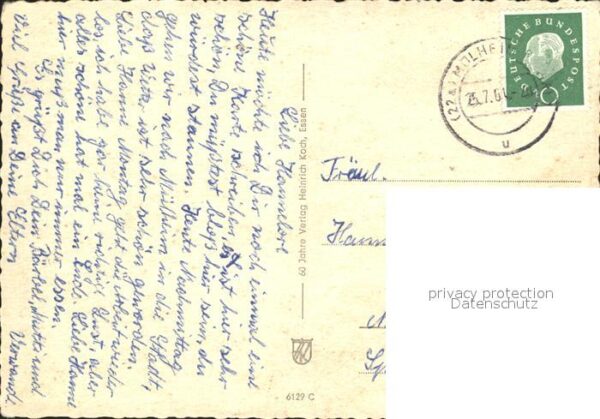 Liebe Hannelore
Heute möchte ich Dir noch einmal eine
schöne Karte schreiben. Es ist hier sehr
schön, Du müßtest bloß hier sein, du
würdest staunen. Heute Nachmittag
gehen wir nach Mülheim in die Stadt,
ist sehr schön geworden.
Liebe Hanne Montag geht die Arbeit wieder
los, ich habe gar keine richtige Lust, aber
alles schöne hat mal ein Ende. Liebe Hanne
hier muß man nur immer essen.
Es grüßt Dich Dein Bärbel, Mutti und
Viel Grüß an Dein Eltern Verwandt
60 Jahre Verlag Heinrich Koch, Essen
6129 C
DEUTSCHE BUNDESPOST
10
(22a) MÜLHEIM
25.7.61
u
Fräul.
Hann
privacy protection
www.oldthing.de